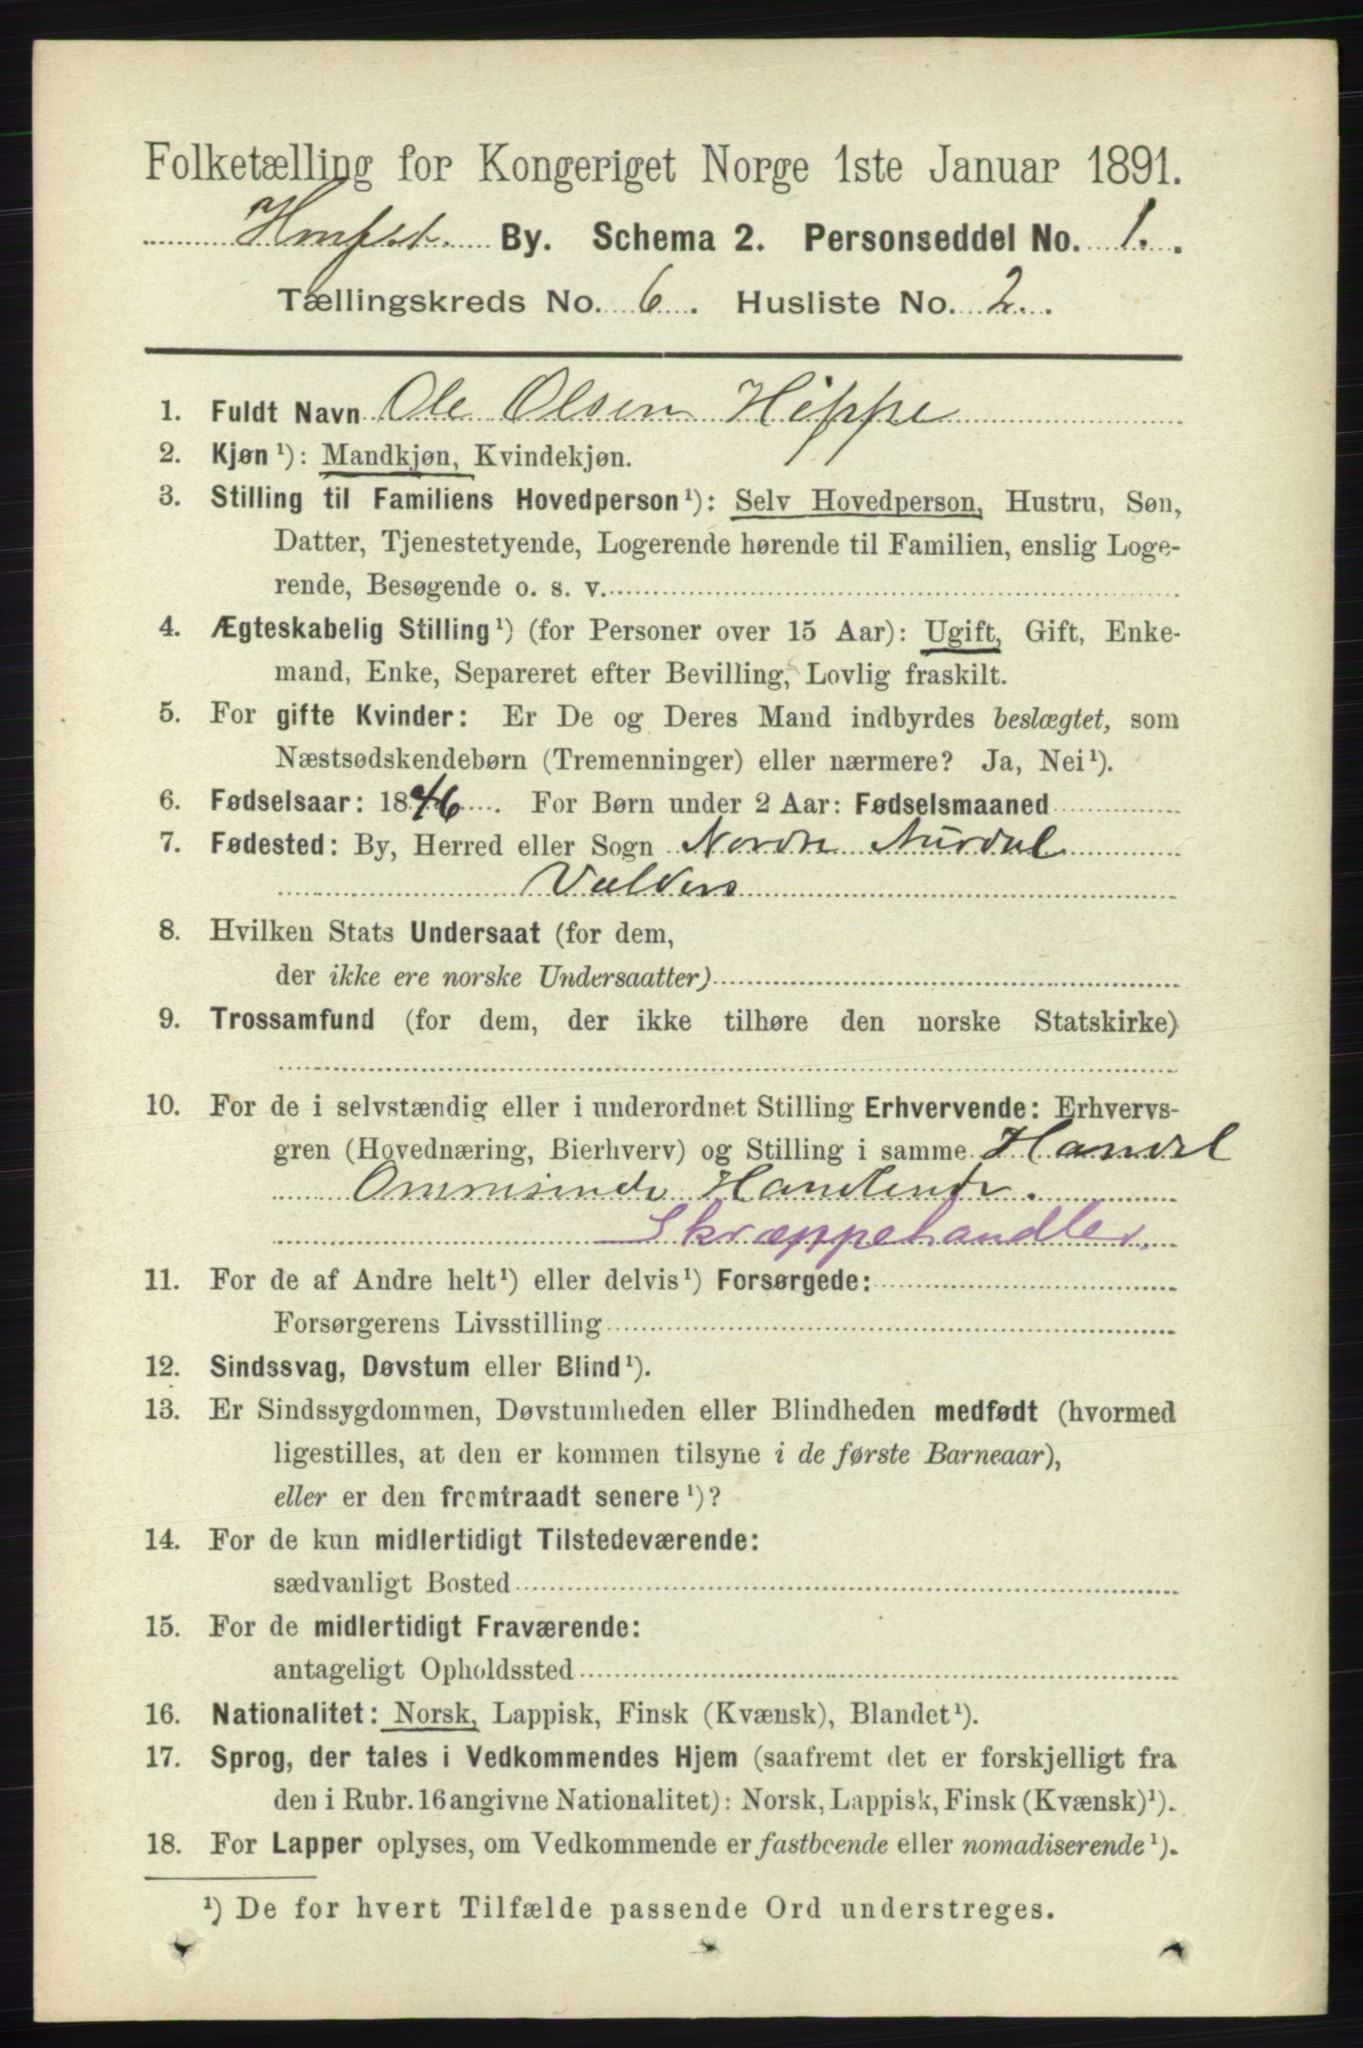 Folketælling for Kongeriget Norge 1ste Januar 1891.
Hønefos By. Schema 2. Personseddel No. 1.
Tællingskreds No. 6. Husliste No. 2.
1. Fuldt Navn Ole Olsen Hippe
2. Kjøn¹): Mandkjøn, Kvindekjøn.
3. Stilling til Familiens Hovedperson¹): Selv Hovedperson, Hustru, Søn,
Datter, Tjenestetyende, Logerende hørende til Familien, enslig Loge-
rende, Besøgende o. s. v.
4. Ægteskabelig Stilling¹) (for Personer over 15 Aar): Ugift, Gift, Enke-
mand, Enke, Separeret efter Bevilling, Lovlig fraskilt.
5. For gifte Kvinder: Er De og Deres Mand indbyrdes beslægtet, som
Næstsødskendebørn (Tremenninger) eller nærmere? Ja, Nei¹).
6. Fødselsaar: 1846. For Børn under 2 Aar: Fødselsmaaned
7. Fødested: By, Herred eller Sogn Nordre Aurdal
Valders
8. Hvilken Stats Undersaat (for dem,
der ikke ere norske Undersaatter)
9. Trossamfund (for dem, der ikke tilhøre den norske Statskirke)
10. For de i selvstændig eller i underordnet Stilling Erhvervende: Erhvervs-
gren (Hovednæring, Bierhverv) og Stilling i samme Handel
Omreisende Handlende.
Skræppehandler.
11. For de af Andre helt¹) eller delvis¹) Forsørgede:
Forsørgerens Livsstilling
12. Sindssvag, Døvstum eller Blind¹).
13. Er Sindssygdommen, Døvstumheden eller Blindheden medfødt (hvormed
ligestilles, at den er kommen tilsyne i de første Barneaar),
eller er den fremtraadt senere¹)?
14. For de kun midlertidigt Tilstedeværende:
sædvanligt Bosted
15. For de midlertidigt Fraværende:
antageligt Opholdssted
16. Nationalitet: Norsk, Lappisk, Finsk (Kvænsk), Blandet¹).
17. Sprog, der tales i Vedkommendes Hjem (saafremt det er forskjelligt fra
den i Rubr. 16 angivne Nationalitet): Norsk, Lappisk, Finsk (Kvænsk)¹).
18. For Lapper oplyses, om Vedkommende er fastboende eller nomadiserende¹).
¹) De for hvert Tilfælde passende Ord understreges.